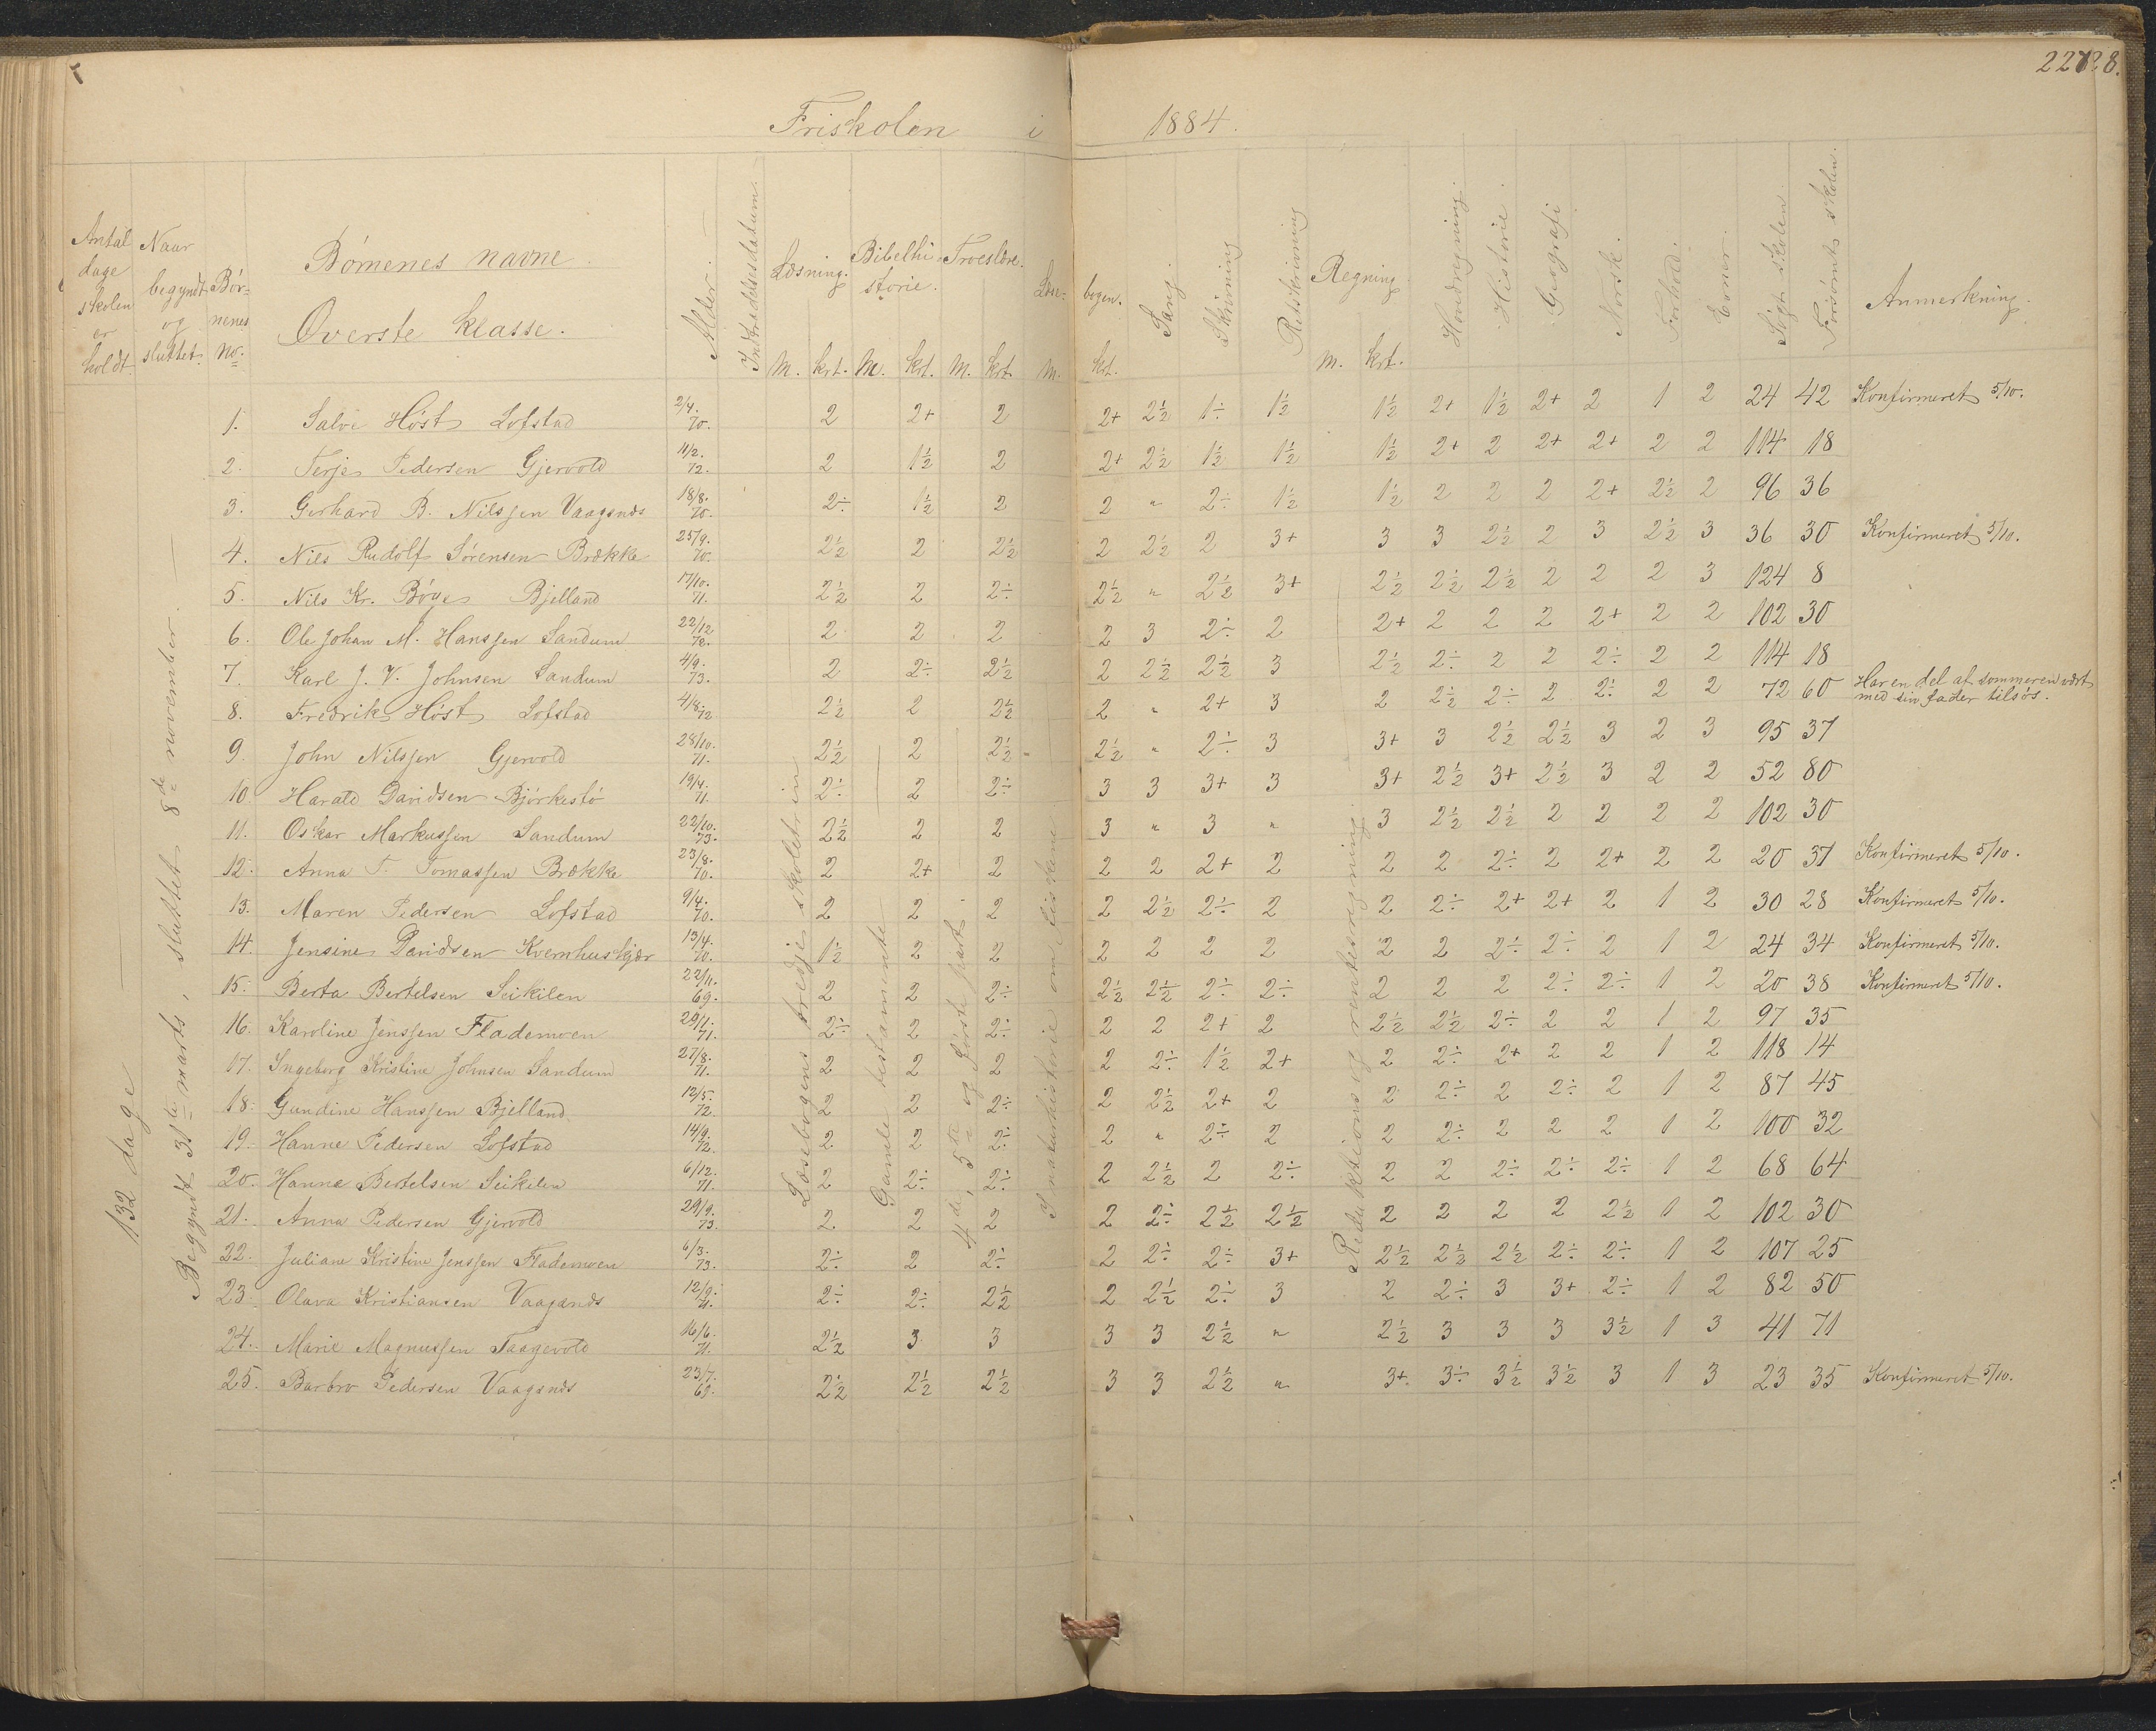 Friskolen i 1884.
Antal dage skolen er holdt.
Naar begyndt og sluttet.
Børnenes no.
Børnenes navne.
Øverste klasse.
Alder.
Indtrædelsesdatum.
Læsning. m. krt.
Bibelhistorie. m. krt.
Troeslære. m. krt.
Læsebogen. m. krt.
Sang.
Skrivning
Retskrivning
Regning m. krt.
Hovedregning
Historie.
Geografi
Norsk.
Forhold.
Evner.
Søgt skolen.
Forsømt skolen.
Anmerkning.
132 dage
Begyndt 31te marts, sluttet 8de november.
Læsebogens tredje skoletrin
Gamle testamente
4de, 5te og første part.
I naturhistorie om fiskene
Reduktions og rentesregning.
1. Salve Høst Lofstad 2/4. 70. 2 2+ 2 2+ 2½ 1÷ 1½ 1½ 2+ 1½ 2+ 2 1 2 24 42 Konfirmeret 5/10.
2. Terje Pedersen Gjervold 11/2. 72. 2 1½ 2 2+ 2½ 1½ 1½ 1½ 2+ 2 2+ 2+ 2 2 114 18
3. Gerhard B. Nilssen Vaagsnes 18/8. 70. 2÷ 1½ 2 2 " 2÷ 1½ 1½ 2 2 2 2+ 2½ 2 96 36
4. Nils Rudolf Sørensen Brække 25/9. 70. 2½ 2 2½ 2 2½ 2 3+ 3 3 2½ 2 3 2½ 3 36 30 Konfirmeret 5/10.
5. Nils Kr. Bøye Bjelland 17/10. 71. 2½ 2 2÷ 2½ " 2½ 3+ 2½ 2½ 2½ 2 2 2 3 124 8
6. Ole Johan M. Hanssen Sandum 22/12 72. 2 2 2 2 3 2÷ 2 2+ 2 2 2 2+ 2 2 102 30
7. Karl J. V. Johnsen Sandum 4/9. 73. 2 2÷ 2½ 2 2½ 2½ 3 2½ 2÷ 2 2 2÷ 2 2 114 18
8. Fredrik Høst Lofstad 4/8. 72 2½ 2 2½ 2 " 2+ 3 2 2½ 2÷ 2 2÷ 2 2 72 60 Har en del af sommeren vært med sin fader tilsøs.
9. John Nilssen Gjervold 28/10. 71. 2½ 2 2½ 2½ " 2÷ 3 3+ 3 2½ 2½ 3 2 3 95 37
10. Harald Davidsen Bjørkestø 19/4. 71. 2÷ 2 2÷ 3 3 3+ 3 3+ 2½ 3+ 2½ 3 2 2 52 80
11. Oskar Markussen Sandum 22/10. 73. 2½ 2 2 3 " 3 " 3 2½ 2½ 2 2 2 2 102 30
12. Anna T. Tomassen Brække 23/8. 70. 2 2+ 2 2 2 2+ 2 2 2 2÷ 2 2+ 2 2 20 37 Konfirmeret 5/10.
13. Maren Pedersen Lofstad 9/4. 70. 2 2 2 2 2½ 2÷ 2 2 2÷ 2+ 2+ 2 1 2 30 28 Konfirmeret 5/10.
14. Jensine Davidsen Kvernhuskjær 13/4. 70. 1½ 2 2 2 2 2 2 2 2 2÷ 2÷ 2 1 2 24 34 Konfirmeret 5/10.
15. Berta Bertelsen Seikilen 22/11. 69. 2 2 2÷ 2½ 2½ 2÷ 2÷ 2 2 2 2÷ 2÷ 1 2 20 38 Konfirmeret 5/10.
16. Karoline Jenssen Flademoen 29/1. 71. 2÷ 2 2÷ 2 2 2+ 2 2½ 2½ 2÷ 2 2 1 2 97 35
17. Ingeborg Kristine Johnsen Sandum 27/8. 71. 2 2 2 2 2÷ 1½ 2+ 2 2÷ 2+ 2 2 1 2 118 14
18. Gundine Hanssen Bjelland 12/5. 72. 2 2 2÷ 2 2½ 2+ 2 2 2÷ 2 2÷ 2 1 2 87 45
19. Hanne Pedersen Lofstad 14/9. 72. 2 2 2÷ 2 " 2÷ 2 2 2÷ 2 2 2 1 2 100 32
20. Hanne Bertelsen Seikilen 6/12. 71. 2 2÷ 2÷ 2 2½ 2 2÷ 2 2 2÷ 2÷ 2÷ 1 2 68 64
21. Anna Pedersen Gjervold 29/9. 73. 2 2 2 2 2÷ 2½ 2½ 2 2 2 2 2½ 1 2 102 30
22. Juliane Kristine Jenssen Flademoen 6/3. 73. 2÷ 2 2÷ 2 2÷ 2÷ 3+ 2½ 2½ 2½ 2÷ 2÷ 1 2 107 25
23. Olava Kristiansen Vaagsnes 12/9. 71. 2÷ 2÷ 2½ 2 2½ 2÷ 3 2 2÷ 3 3+ 2÷ 1 2 82 50
24. Marie Magnussen Taagevold 16/6. 71. 2½ 3 3 3 3 2½ " 2½ 3 3 3 3½ 1 3 41 71
25. Barbro Pedersen Vaagsnes 23/7. 69. 2½ 2½ 2½ 3 3 2½ " 3+ 3÷ 3½ 3½ 3 1 3 23 35 Konfirmeret 5/10.